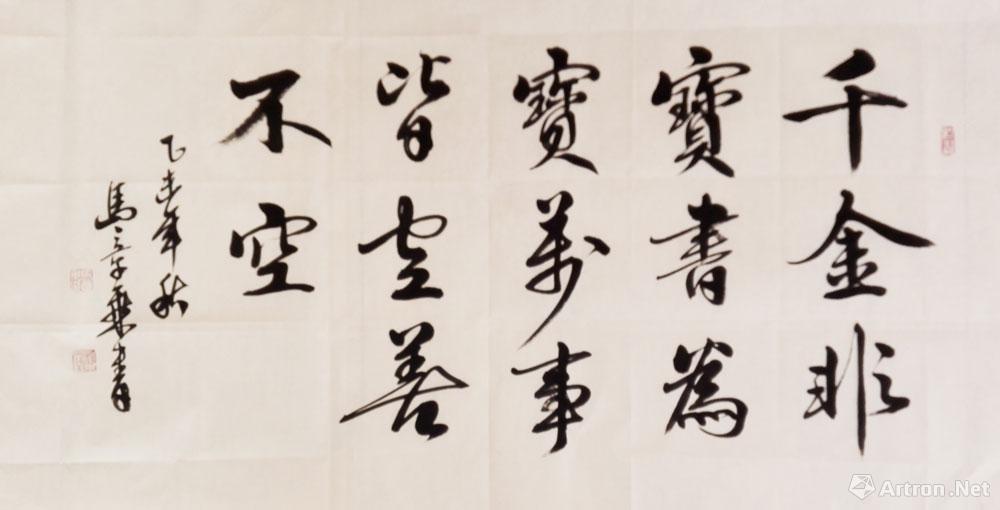 千金非
寶書為
寶萬事
皆空善
不空
乙未年秋
馬章乘書
Artron.Net